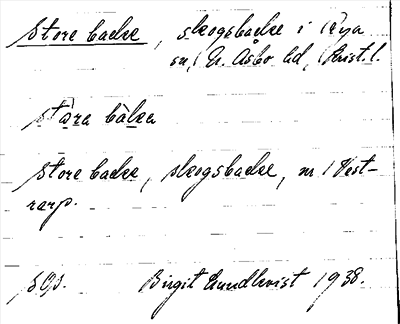 Store backe, skogsbacke i Rya
sn, N. Åsbo hd, Krist. l.
stǻra bàka
Store backe, skogsbacke, nr Vest-
rarp.
SOJ. Birgit Lundkvist 1938.